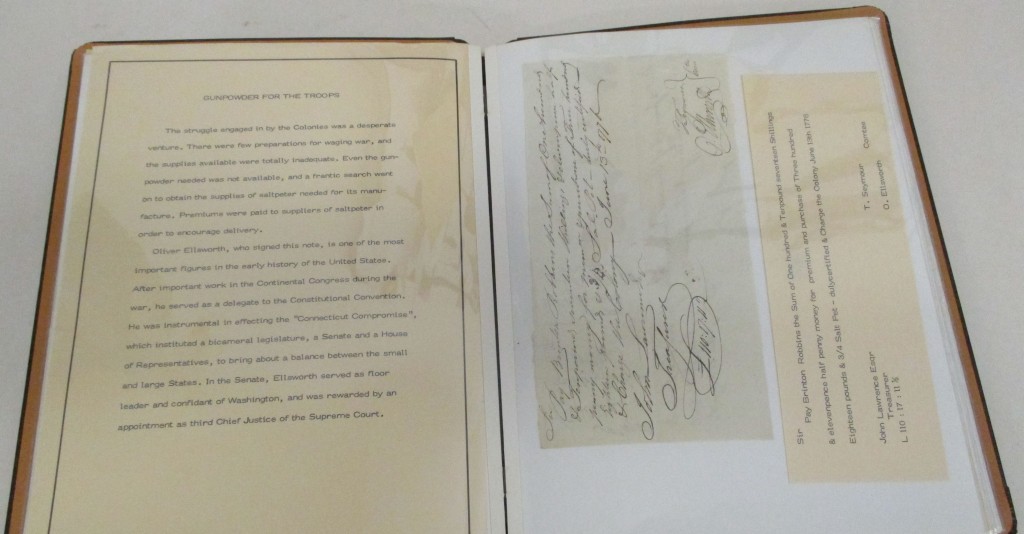 GUNPOWDER FOR THE TROOPS
The struggle engaged in by the Colonies was a desperate
venture. There were few preparations for waging war, and
the supplies available were totally inadequate. Even the gun-
powder needed was not available, and a frantic search went
on to obtain the supplies of saltpeter needed for its manu-
facture. Premiums were paid to suppliers of saltpeter in
order to encourage delivery.
Oliver Ellsworth, who signed this note, is one of the most
important figures in the early history of the United States.
After important work in the Continental Congress during the
war, he served as a delegate to the Constitutional Convention.
He was instrumental in effecting the "Connecticut Compromise",
which instituted a bicameral legislature, a Senate and a House
of Representatives, to bring about a balance between the small
and large States. In the Senate, Ellsworth served as floor
leader and confidant of Washington, and was rewarded by an
appointment as third Chief Justice of the Supreme Court.
Sir Pay Brinton Robbins the Sum of One hundred
& Tenpound seventeen Shillings
& Charge the Colony June 13th 1776
John Lawrence
Treasurer
Sir
Pay Brinton Robbins the Sum of One hundred & Tenpound seventeen Shillings
& elevenpence half penny money for premium and purchase of Three hundred
Eighteen pounds & 3/4 Salt Pet - dulycertified & Charge the Colony June 13th 1776
John Lawrence Esqr
Treasurer
L 110 : 17 : 11 ½
T. Seymour
O. Ellsworth
Comtee